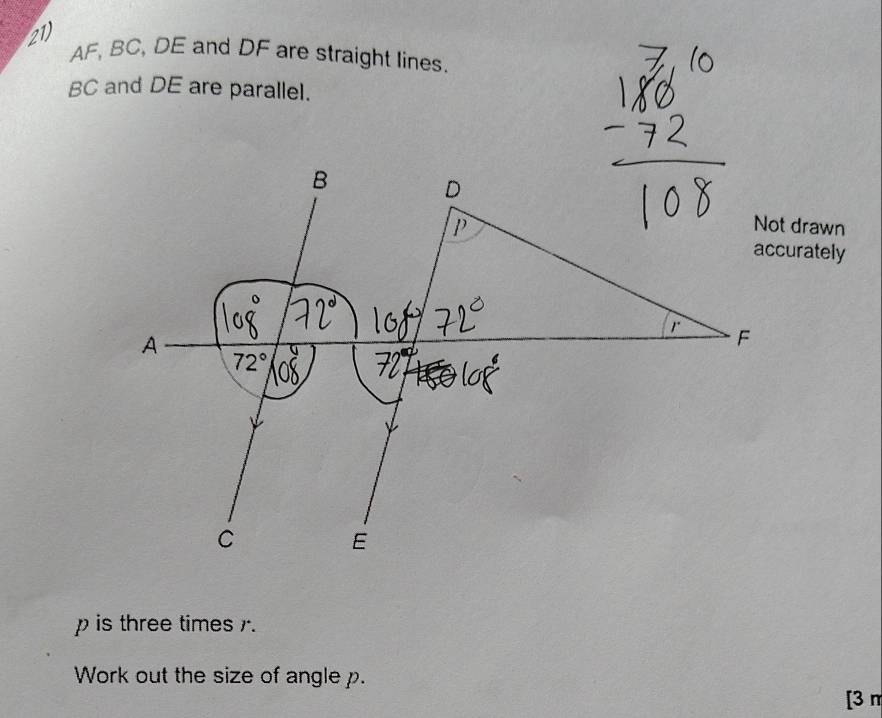 21)
AF, BC, DE and DF are straight lines.
BC and DE are parallel.
7 10
180
- 72
108
Not drawn
accurately
B
D
p
108° 72° 108° 72°
A
r
F
72° 108° 72° 108°
C
E
p is three times r.
Work out the size of angle p.
[3 m